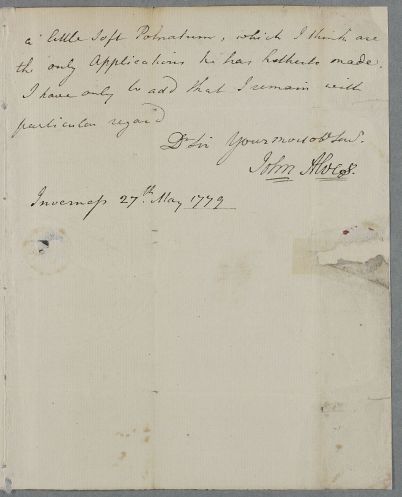 a little Soft Pomatum, which I think are
the only Applications he has hitherto made.
I have only to add that I remain with
particular regard
Dr Sir Your most obt Servt.
John Alves.
Inverness 27th. May 1779